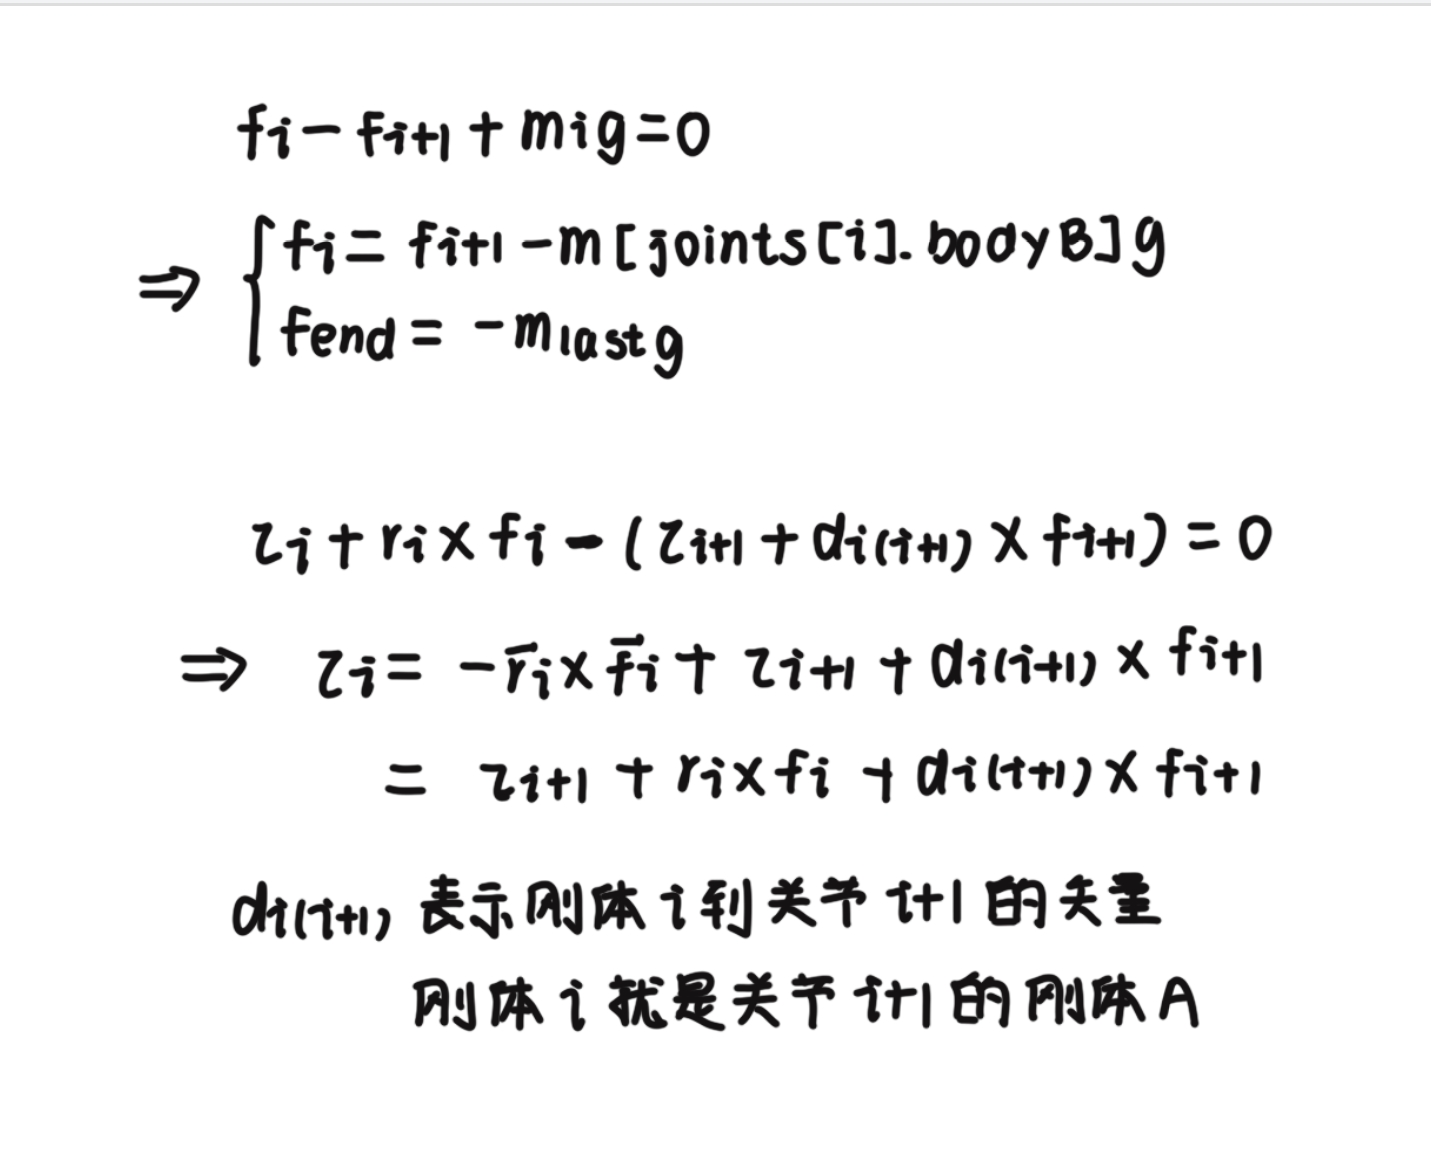 fi - fi+1 + mig = 0
⇒ { fi = fi+1 - m[joints[i].bodyB]g
fend = -mlast g
τi + ri × fi - (τi+1 + di(i+1) × fi+1) = 0
⇒ τi = -r̄i × f̄i + τi+1 + di(i+1) × fi+1
= τi+1 + ri × fi + di(i+1) × fi+1
di(i+1) 表示刚体i到关节i+1的矢量
刚体i就是关节i+1的刚体A